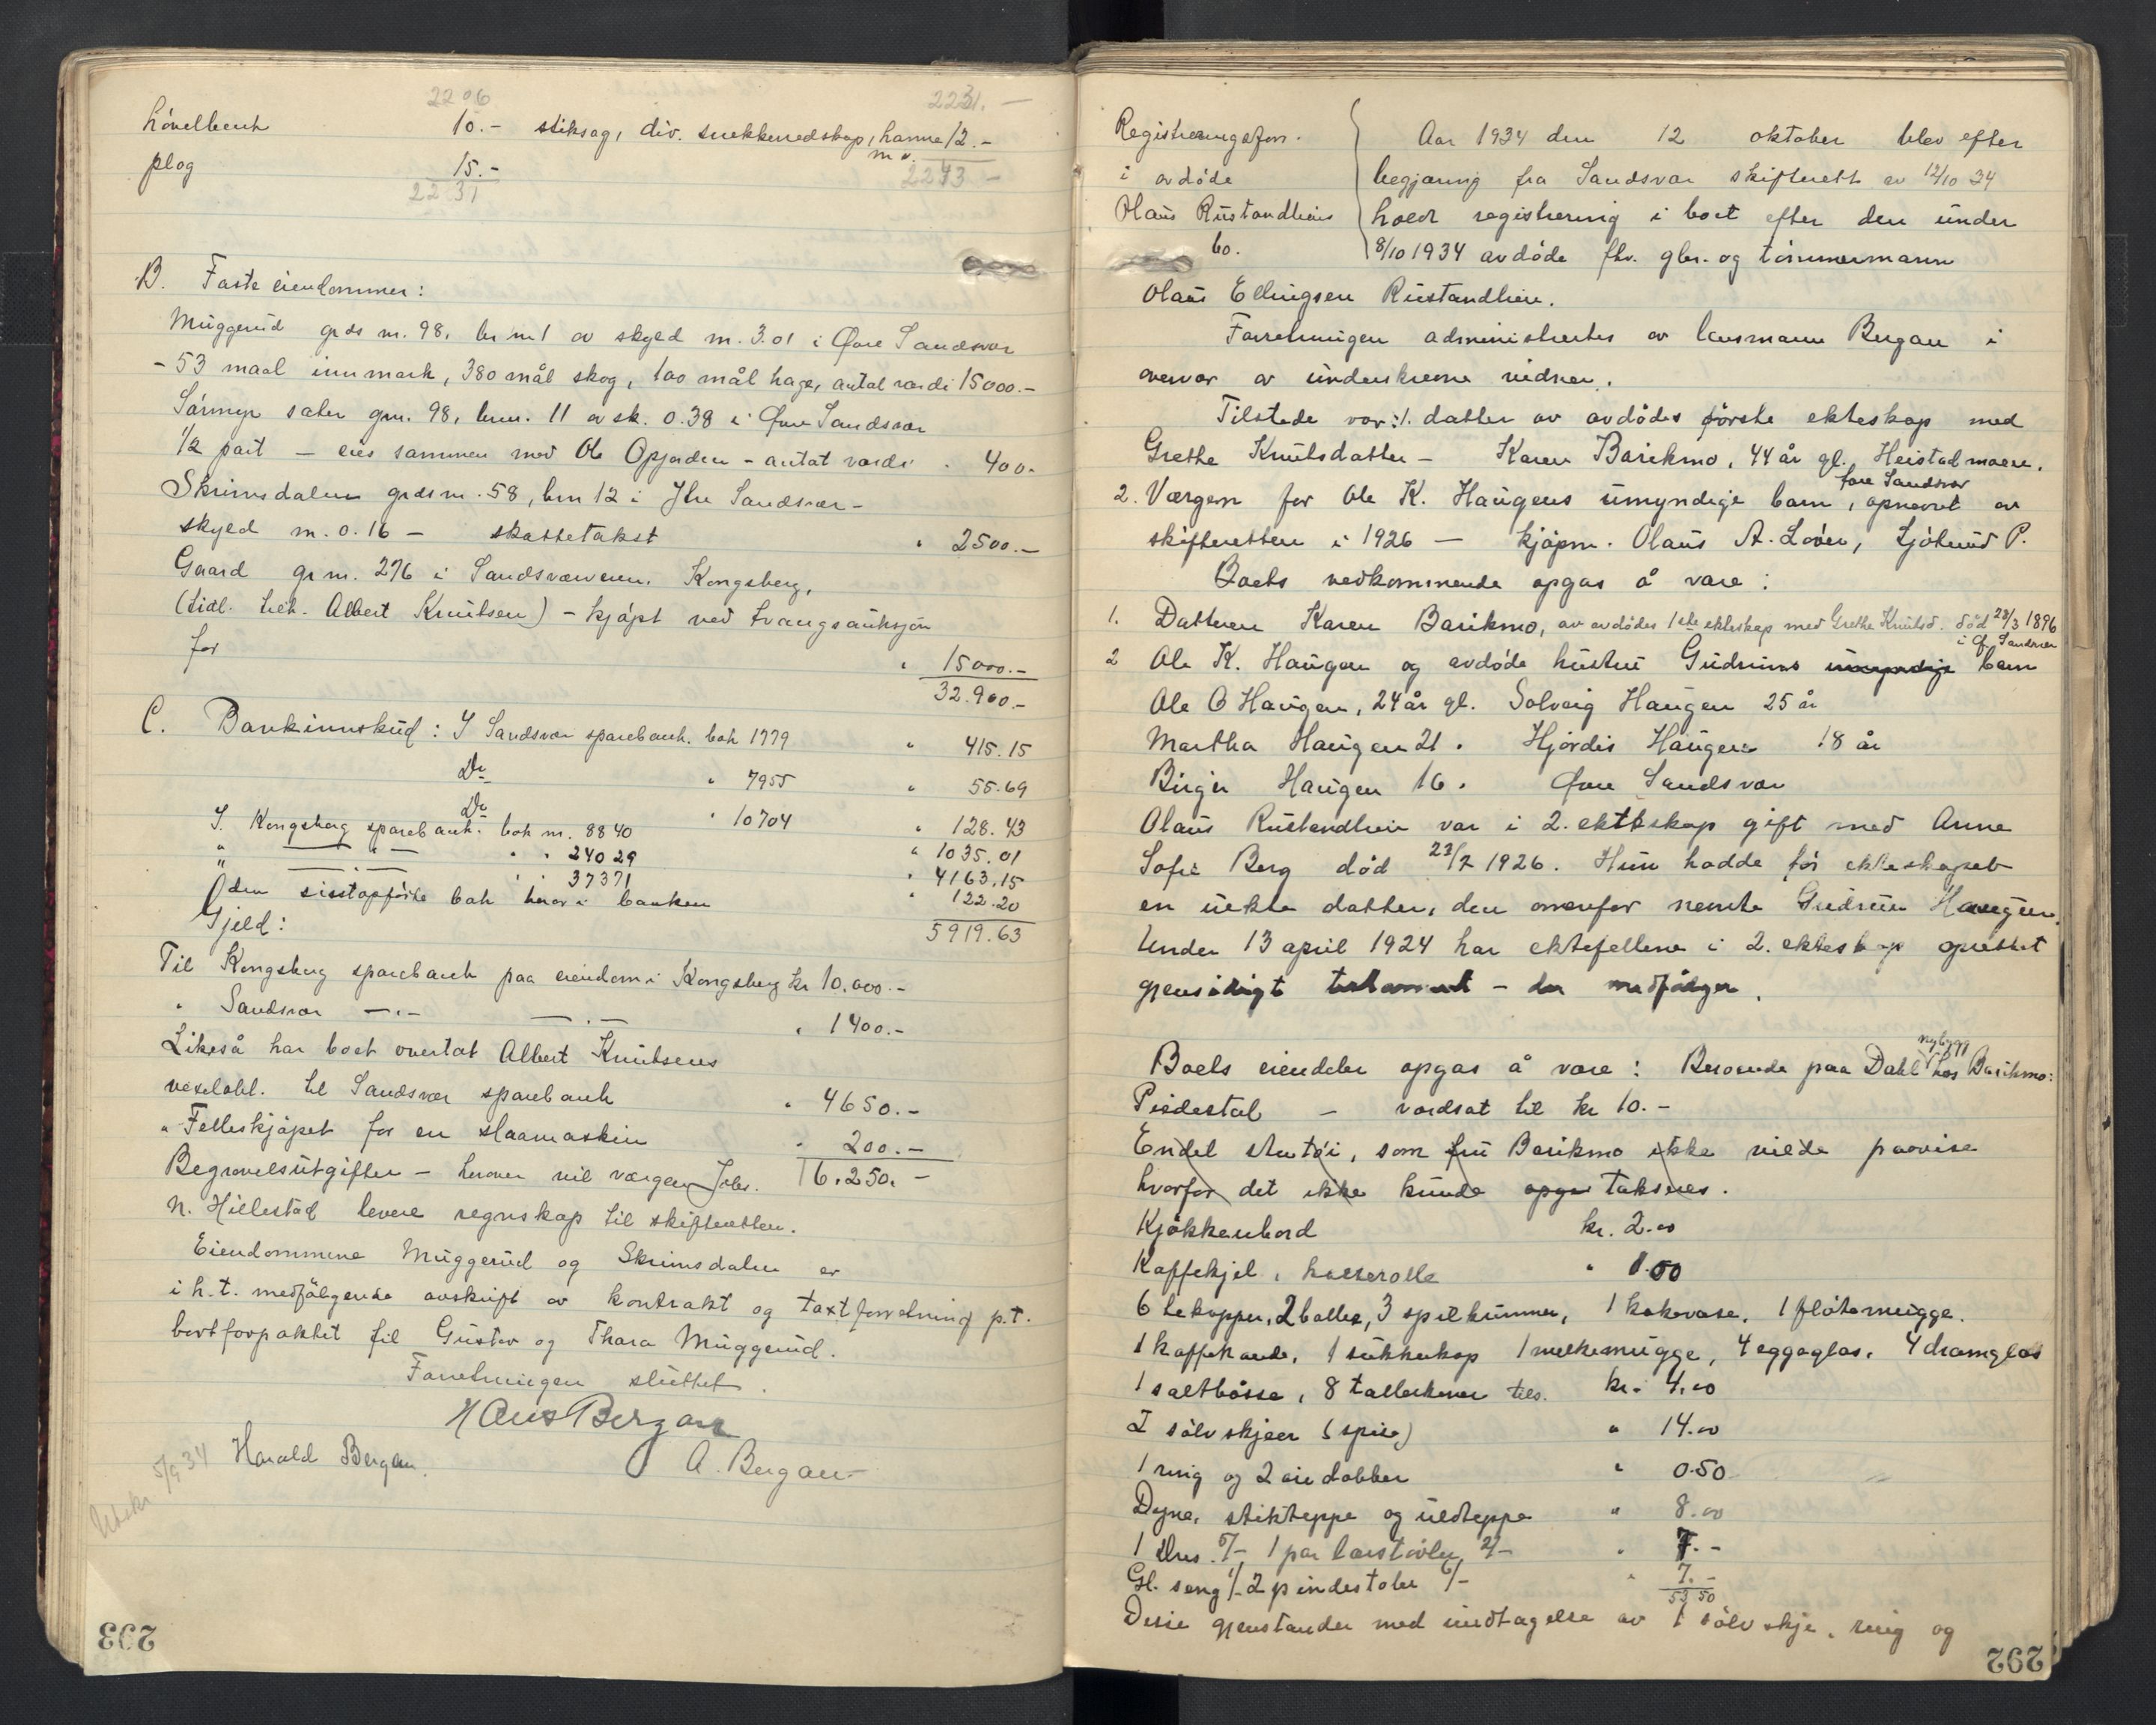 2206 2231.-
hövelbenk 10.- stiksag, div. snekkerredskap, hamre 12.-
m v.
plog 15.- 2243 -
2231
B. Faste eiendommer:
Muggerud grds nr. 98, br nr 1 av skyld m. 3.01 i Øvre Sandsvær
- 53 maal innmark, 380 mål skog, 100 mål hage, antat værdi 15000.-
sæter gnr. 98, brnr. 11 av sk. 0.38 i Øvre Sandsvær
1/2 part - eies sammen med Ole Opjorden - antat værdi " 400.-
Skrimsdalen grdsnr. 58, brn 12 i Ytre Sandsvær -
skyld m. 0.16 - skattetakst " 2500.-
Gaard gr nr. 276 i Kongsberg,
(tidl. tilh. Albert Knutsen) - kjöpt ved tvangsauksjon
for " 15000.-
32.900.-
C. Bankinnskud: I Sandsvær sparebank. bok 1779 " 415.15
Do " 7955 " 55.69
Do " 10704 " 128.43
I. Kongsberg sparebank. bok nr. 8840 " 1035.01
" - " - " " 24029 " 4163.15
" - " - " " 37371 " 122.20
den sisstopförte bok beror i banken 5919.63
Gjeld:
Til Kongsberg sparebank paa eiendom i Kongsberg kr 10.000.-
" Sandsvær - " - - " - " 1400.-
Likeså har boet overtat Albert Knutsens
vexelobl. til Sandsvær sparebank " 4650.-
" Felleskjöpet for en slaamaskin " 200.-
Begravelsutgifter - herover vil værgen Johs. 16.250.-
N. Hillestad levere regnskap til skifteretten.
Eiendommene Muggerud og Skrimsdalen er
i h.t. medfölgende avskrift av kontrakt og taxtforretning p.t.
bortforpaktet til Gustav og Thara Muggerud.
Forretningen sluttet.
Hans Bergan
Harald Bergan. A. Bergan
Utskr 5/9 34
293
Registreringsforr. Aar 1934 den 12 oktober blev efter
i avdöde begjæring fra Sandsvær skifterett av 12/10 34
Olaus Rustandliens holdt registrering i boet efter den under
bo. 8/10 1934 avdöde fhv. gbr. og tömmermann
Olaus Ellingsen Rustandlien.
Forretningen administrertes av lensmann Bergan i
overvær av underskrevne vidner.
Tilstede var: 1. datter av avdödes förste ekteskap med
Grethe Knutsdatter - Karen Barikmo, 44 år gl. Heistadmoen.
Øvre Sandsvær
2. Værgen for Ole K. Haugens umyndige barn, opnevnt av
skifteretten i 1926 - kjöpm. Olaus A. Löver, P.
Boets vedkommende opgas å være:
1. Datteren Karen Barikmo, av avdödes 1ste ekteskap med Grethe Knutsd. död 28/3 1896
i Ø. Sandsvær
2 Ole K. Haugen og avdöde hustru Gudruns umyndige barn
Ole O Haugen, 24 år gl. Solveig Haugen 25 år
Martha Haugen 21. Hjördis Haugen 18 år
Birger Haugen 16. Øvre Sandsvær
Olaus Rustandlien var i 2. ekteskap gift med Anne
Sofie Berg död 23/7 1926. Hun hadde för ekteskapet
en uekte datter, den ovenfor nevnte Gudrun Haugen.
Under 13 april 1924 har ektefellene i 2. ekteskap oprettet
gjensidigt testament - der medfölger.
nybygg
Boets eiendeler opgas å være: Beroende paa Dahl hos Barikmo:
Piedestal - værdsat til kr 10.-
Endel stentöi, som fru Barikmo ikke vilde paavise
hvorfor det ikke kunde opgis takseres.
Kjökkenbord kr. 2.00
Kaffekjel, kasserolle " 1.00
6 tekopper, 2 boller, 3 spilkummer, 1 kakevase, 1 flötemugge.
1 kaffekande, 1 sukkerkop 1 melkemugge, 4 eggeglas, 4 dramglas
1 saltbösse, 8 tallerkener tils. kr. 4.00
I sölvskjeer (spise) " 14.00
1 ring og 2 öredobber " 0.50
Dyne, stikteppe og uldteppe " 8.00
1 dres 5/-, 1 par lærstövler 2/- " 7.-
Gl. seng 1/- 2 pindestoler 6/- " 7.-
53 50
Disse gjenstander med undtagelse av 1 sölvskje, ring og
292